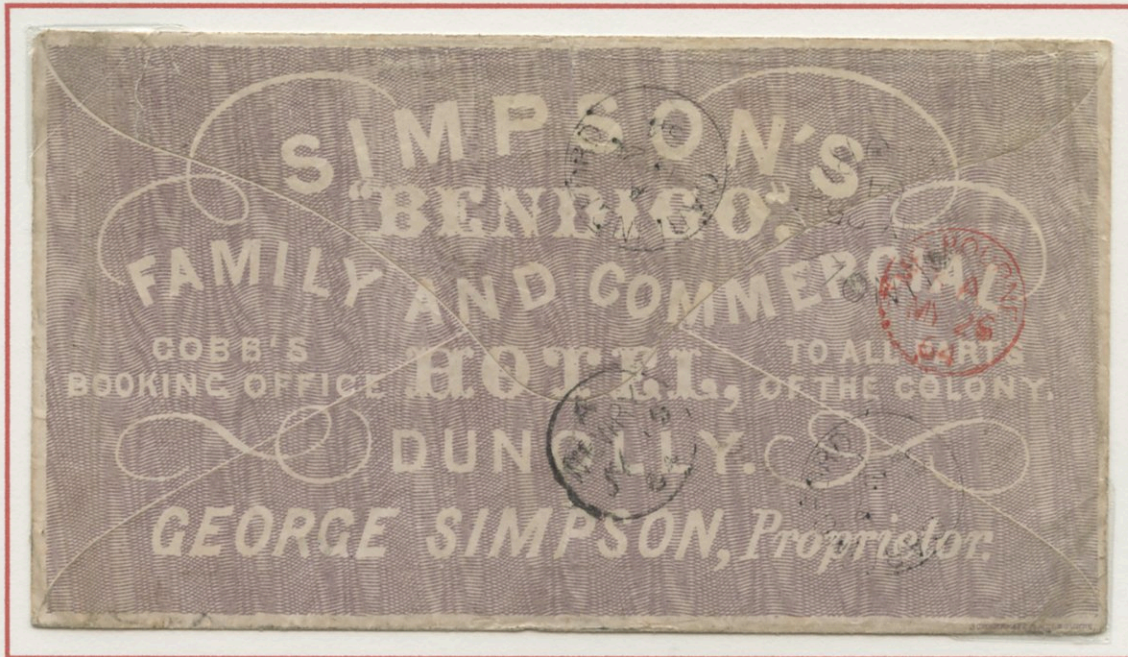 SIMPSON'S
"BENDIGO"
FAMILY AND COMMERCIAL
COBB'S
BOOKING OFFICE
HOTEL,
TO ALL PARTS
OF THE COLONY.
DUNOLLY.
GEORGE SIMPSON, Proprietor.
MY 26